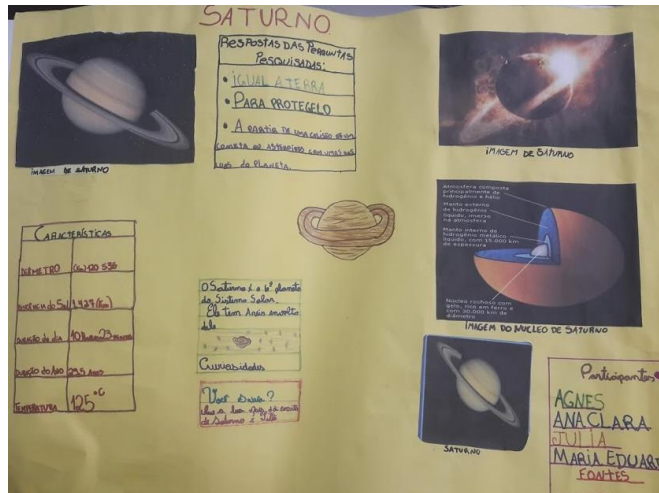 SATURNO
RESPOSTAS DAS PERGUNTAS
PESQUISADAS:
• IGUAL A TERRA
• PARA PROTEGELO
• A PARTIR DE UMA COLISÃO DE UM
COMETA OU ASTEROIDE COM UMAS DAS
LUAS DO PLANETA.
IMAGEM DE SATURNO
IMAGEM DE SATURNO
Atmosfera composta
principalmente de
hidrogênio e hélio
Manto externo
de hidrogênio
líquido, imerso
na atmosfera
Manto interno de
hidrogênio metálico
líquido, com 15.000 km
de espessura
Núcleo rochoso com
gelo, rico em ferro e
com 30.000 km de
diâmetro
IMAGEM DO NUCLEO DE SATURNO
CARACTERÍSTICAS
DIÂMETRO (Km) 120 536
DISTÂNCIA do Sol 1.427 (Km)
DURAÇÃO do dia 10 horas 23
DURAÇÃO do Ano 29,5 anos
TEMPERATURA 125°C
O Saturno é o 6º planeta
do Sistema Solar.
Ele tem Anéis envolta
dele
Curiosidades
Você Sabia?
de Saturno é Titã
SATURNO
Participantes
AGNES
ANA CLARA
JULIA
MARIA EDUAR
FONTES